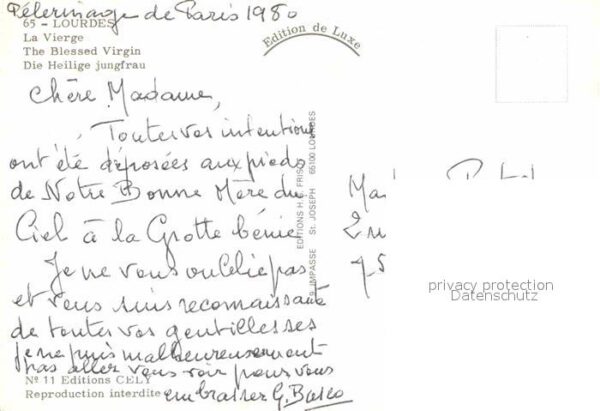 Pélerinage de Paris 1980
65 - LOURDES
La Vierge
The Blessed Virgin
Die Heilige jungfrau
Edition de Luxe
Chère Madame,
Toutes vos intentions
ont été déposées aux pieds
de Notre Bonne Mère du
Ciel à la Grotte bénie
Je ne vous oublie pas
et vous suis reconnaissante
de toutes vos gentillesses
je ne puis malheureusement
pas aller vous voir pour vous
embrasser G.
Nº 11 Editions CELY
Reproduction interdite
EDITIONS H.
9 IMPASSE St. JOSEPH 65100 LOURDES
privacy protection
Datenschutz